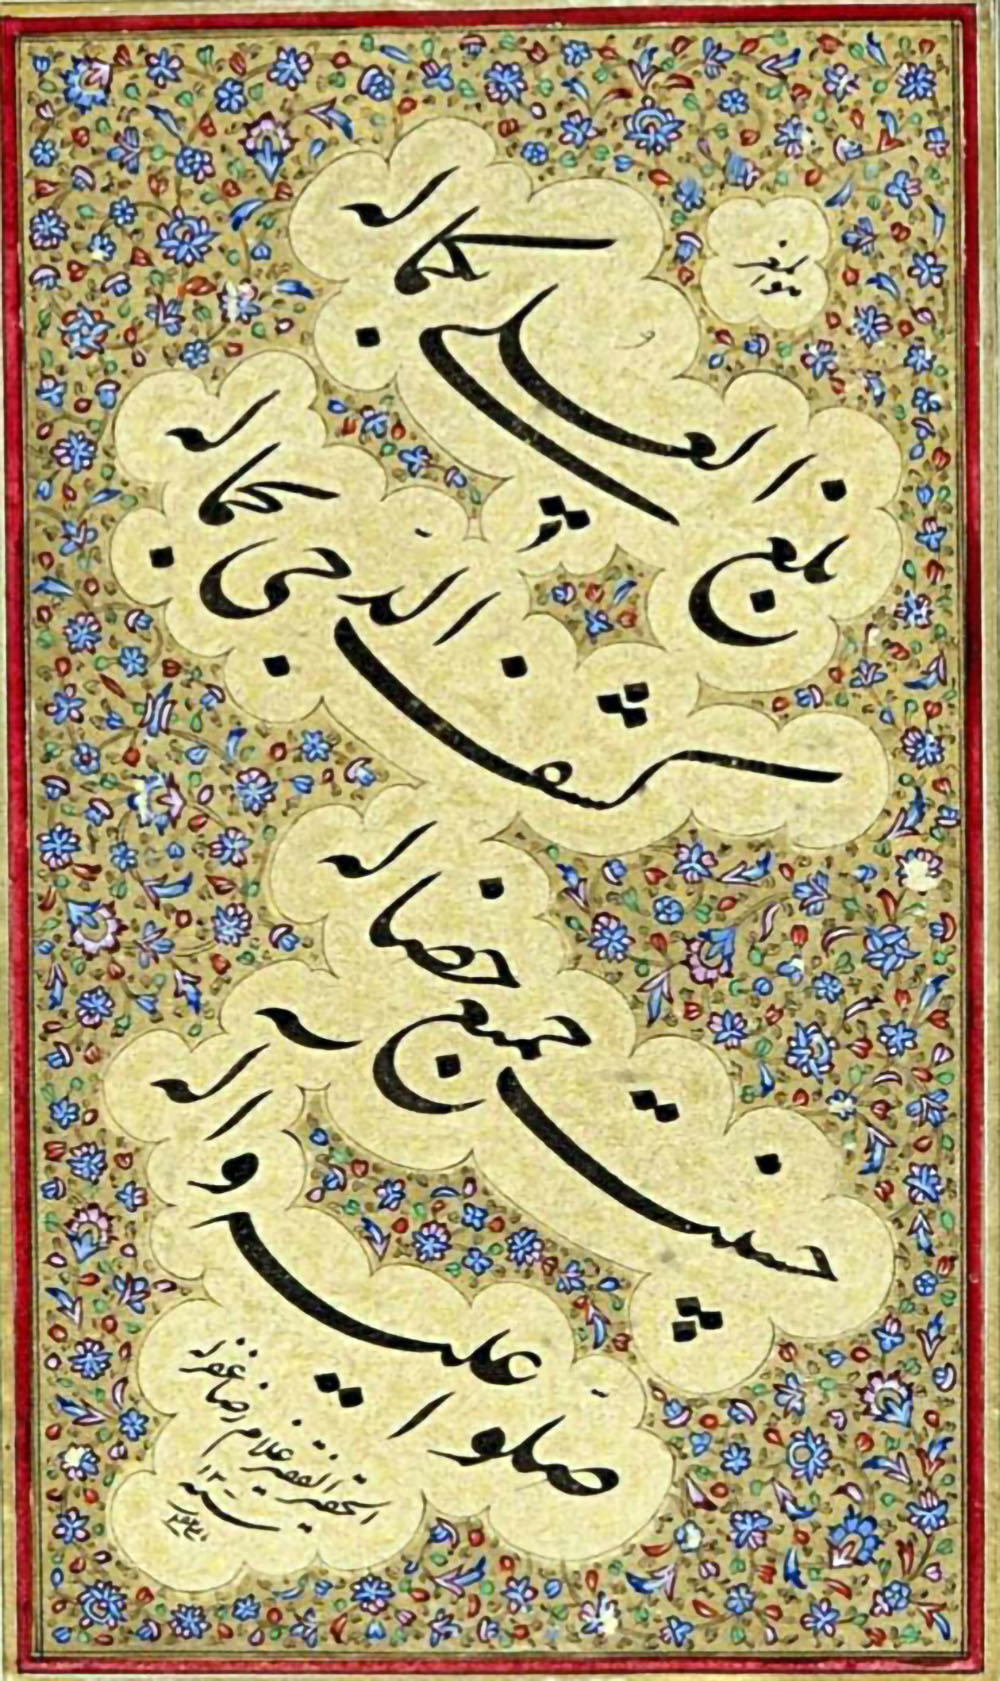 بلغ العلی بکماله
کشف الدجی بجماله
حسنت جمیع خصاله
صلوا علیه و آله
الحقیر الفقیر غلام رضا غفر له
سنه